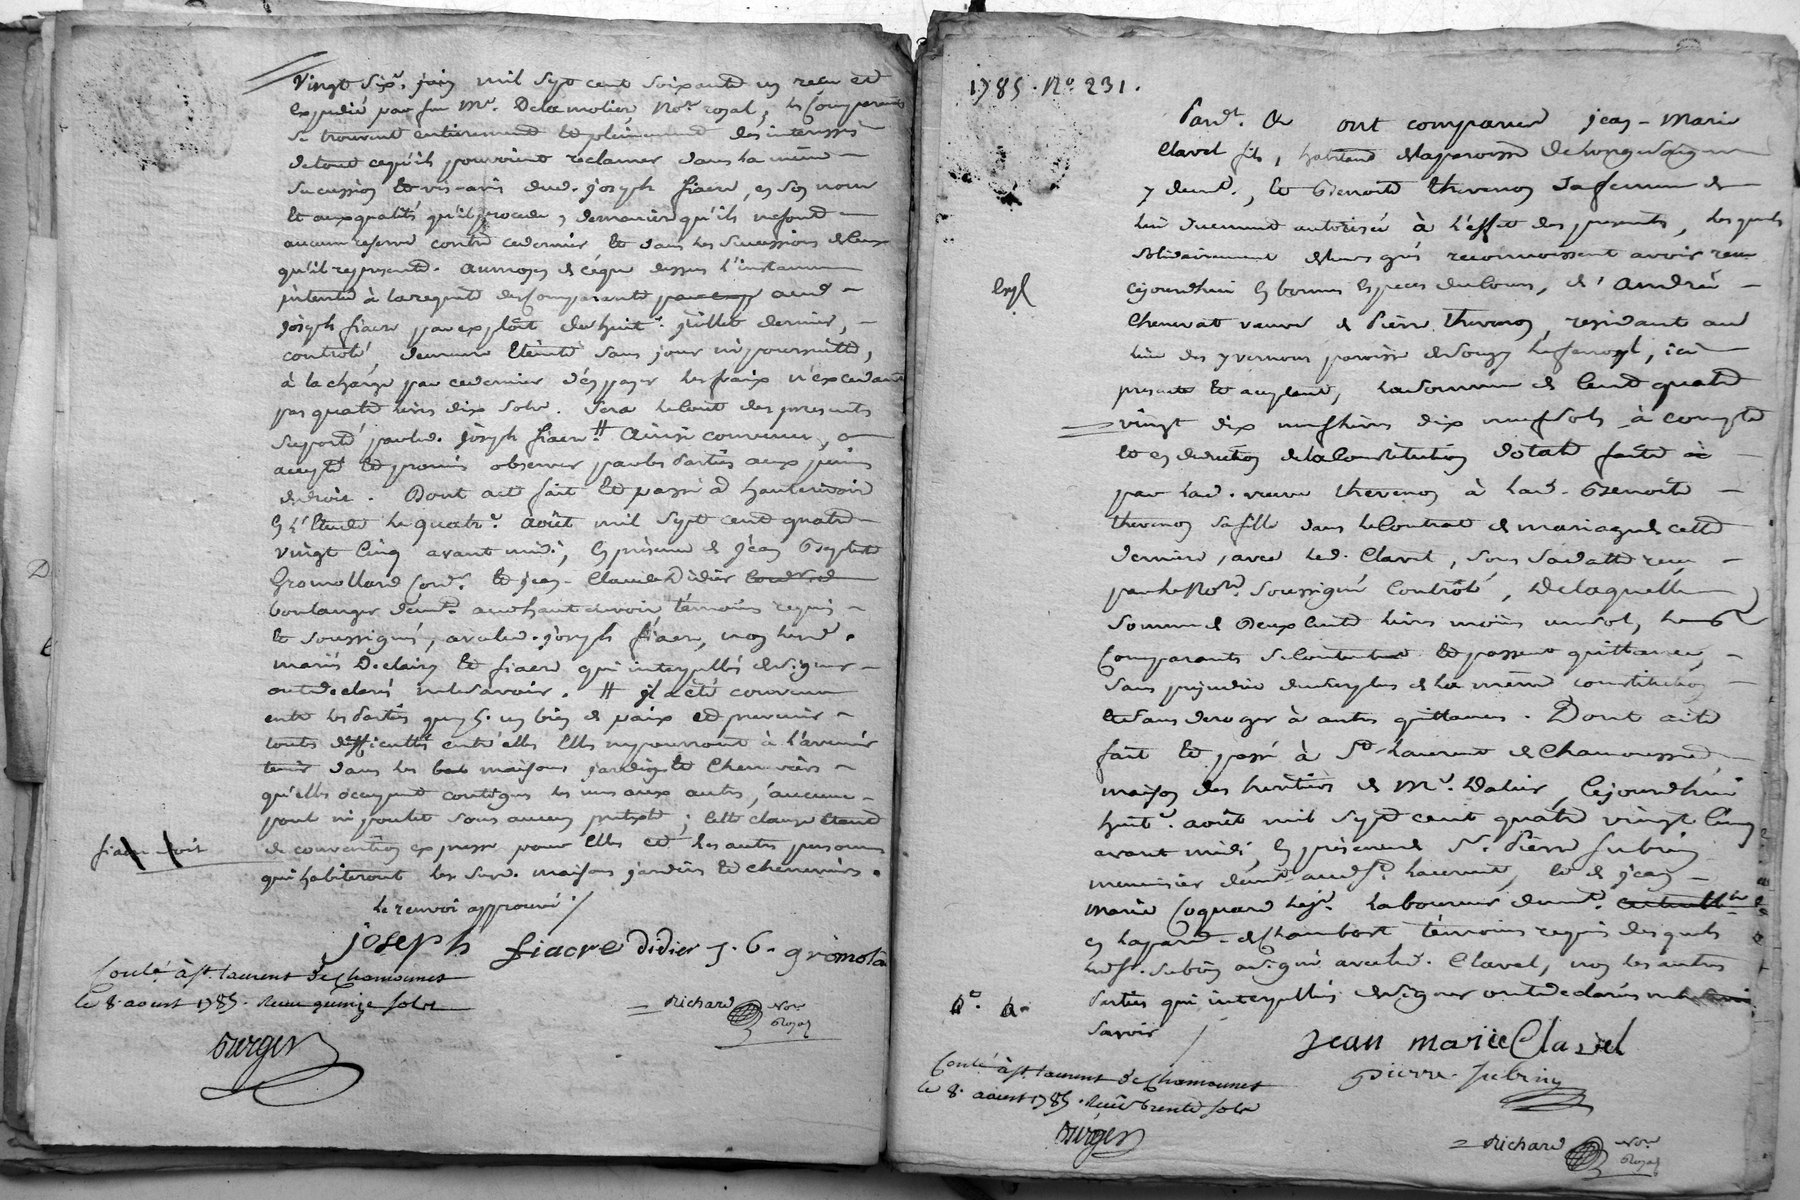 Vingt six.e juin mil sept cent soixante un reçu et
expedié par feu Me. Delamolier, No.re royal, les Comparants
se trouvent entierement et pleinement des interessés
de tout ce qu'ils pouvoient reclamer dans la même
succession et vis-avis dud. joseph fiacre, en son nom
et aux qualités qu'il procede, de maniere qu'ils ne font
aucune reserve contre ce dernier et dans les successions de ceux
qu'il represente. au moyen de ce que dessus l'instance
intentée à la requete des Comparants aud.
joseph fiacre par exploit du huit.e juillet dernier,
controlé demeure éteinte sans jour ni poursuitte,
à la charge par ce dernier d'en payer les fraix n'excedant
pas quatre livres dix sols. sera le cout des presents
suporté par led. joseph fiacre. # Ainsi convenu,
accepté et promis observer par les parties aux peines
de droit. Dont acte fait et passé à hauterivoire
en l'Etude le quatr.e août mil sept cent quatre
vingt cinq avant midi, en presence de jean Baptiste
Gromollard cord.r et jean-Claude Didier
boulanger dem.t aud. hauterivoire témoins requis
et soussignés, avec led. joseph fiacre, non les d.
mariés Declairy et fiacre qui interpellés de signer
ont declaré ne le savoir. # il a été convenu
entre les parties que p.r un bien de paix et prevenir
toutes difficultés entre elles elles ne pourront à l'avenir
tenir dans les maisons jardins et chenevieres
qu'elles occupent contigues les unes aux autres, aucune
poule ni poulet sous aucun pretexte; cette clause étant
de convention expresse pour elles et les autres personnes
qui habiteront les susd. maisons jardins et chenevieres.
le renvoi approuvé
joseph fiacre didier J. b. gromola
Conlé à st. laurent de Chamousset
le 8. aoust 1785. Reçu quinze sols
Burger
Richard No.re Royal
1785. No. 231.
Pard.t &c ont comparu jean-Marie
Clavel fils, habitant de la paroisse de longessaigne
y dem.t, et Benoite thevenon sa femme de
lui duement autorisée à l'effet des presents, lesquels
solidairement de leurs grés reconnoissent avoir reçu
cejourdhui en bonnes especes du cours, d'andrée
Chenevat veuve de Pierre thevenon, residante au
lieu des yvernons paroisse de souzy, ici
presente et acceptante, la somme de cent quatre
vingt dix neuf livres dix neuf sols à compte
et en deduction de la Constitution dotale faite
par lad. veuve thevenon à lad. Benoite
thevenon sa fille dans le Contrat de mariage de cette
derniere, avec led. Clavel, sous sa datte reçu
par le No.re soussigné Controlé, De laquelle
somme de deux cents livres moins un sol, les
Comparants se contentent et passent quittance,
sans prejudice du surplus de la même constitution
et sans deroger à autres quittances. Dont acte
fait et passé à St. Laurent de Chamousset,
maison des heritiers de Me. Dalier, cejourdhui
huit.e août mil sept cent quatre vingt cinq
avant midi, en presence de Sr. Pierre subrin
menuisier dem.t aud. st. laurent, et de jean
marie Coquard laboureur dem.t
en la par. de Chambost témoins requis desquels
led. sr. subrin a signé avec led. Clavel, non les autres
parties qui interpellés de signer ont declaré ne
savoir
jean marie Clavel
pierre subrin
Conlé à st. laurent de Chamousset
le 8. aoust 1785. Reçu trente sols
Burger
Richard No.re Royal